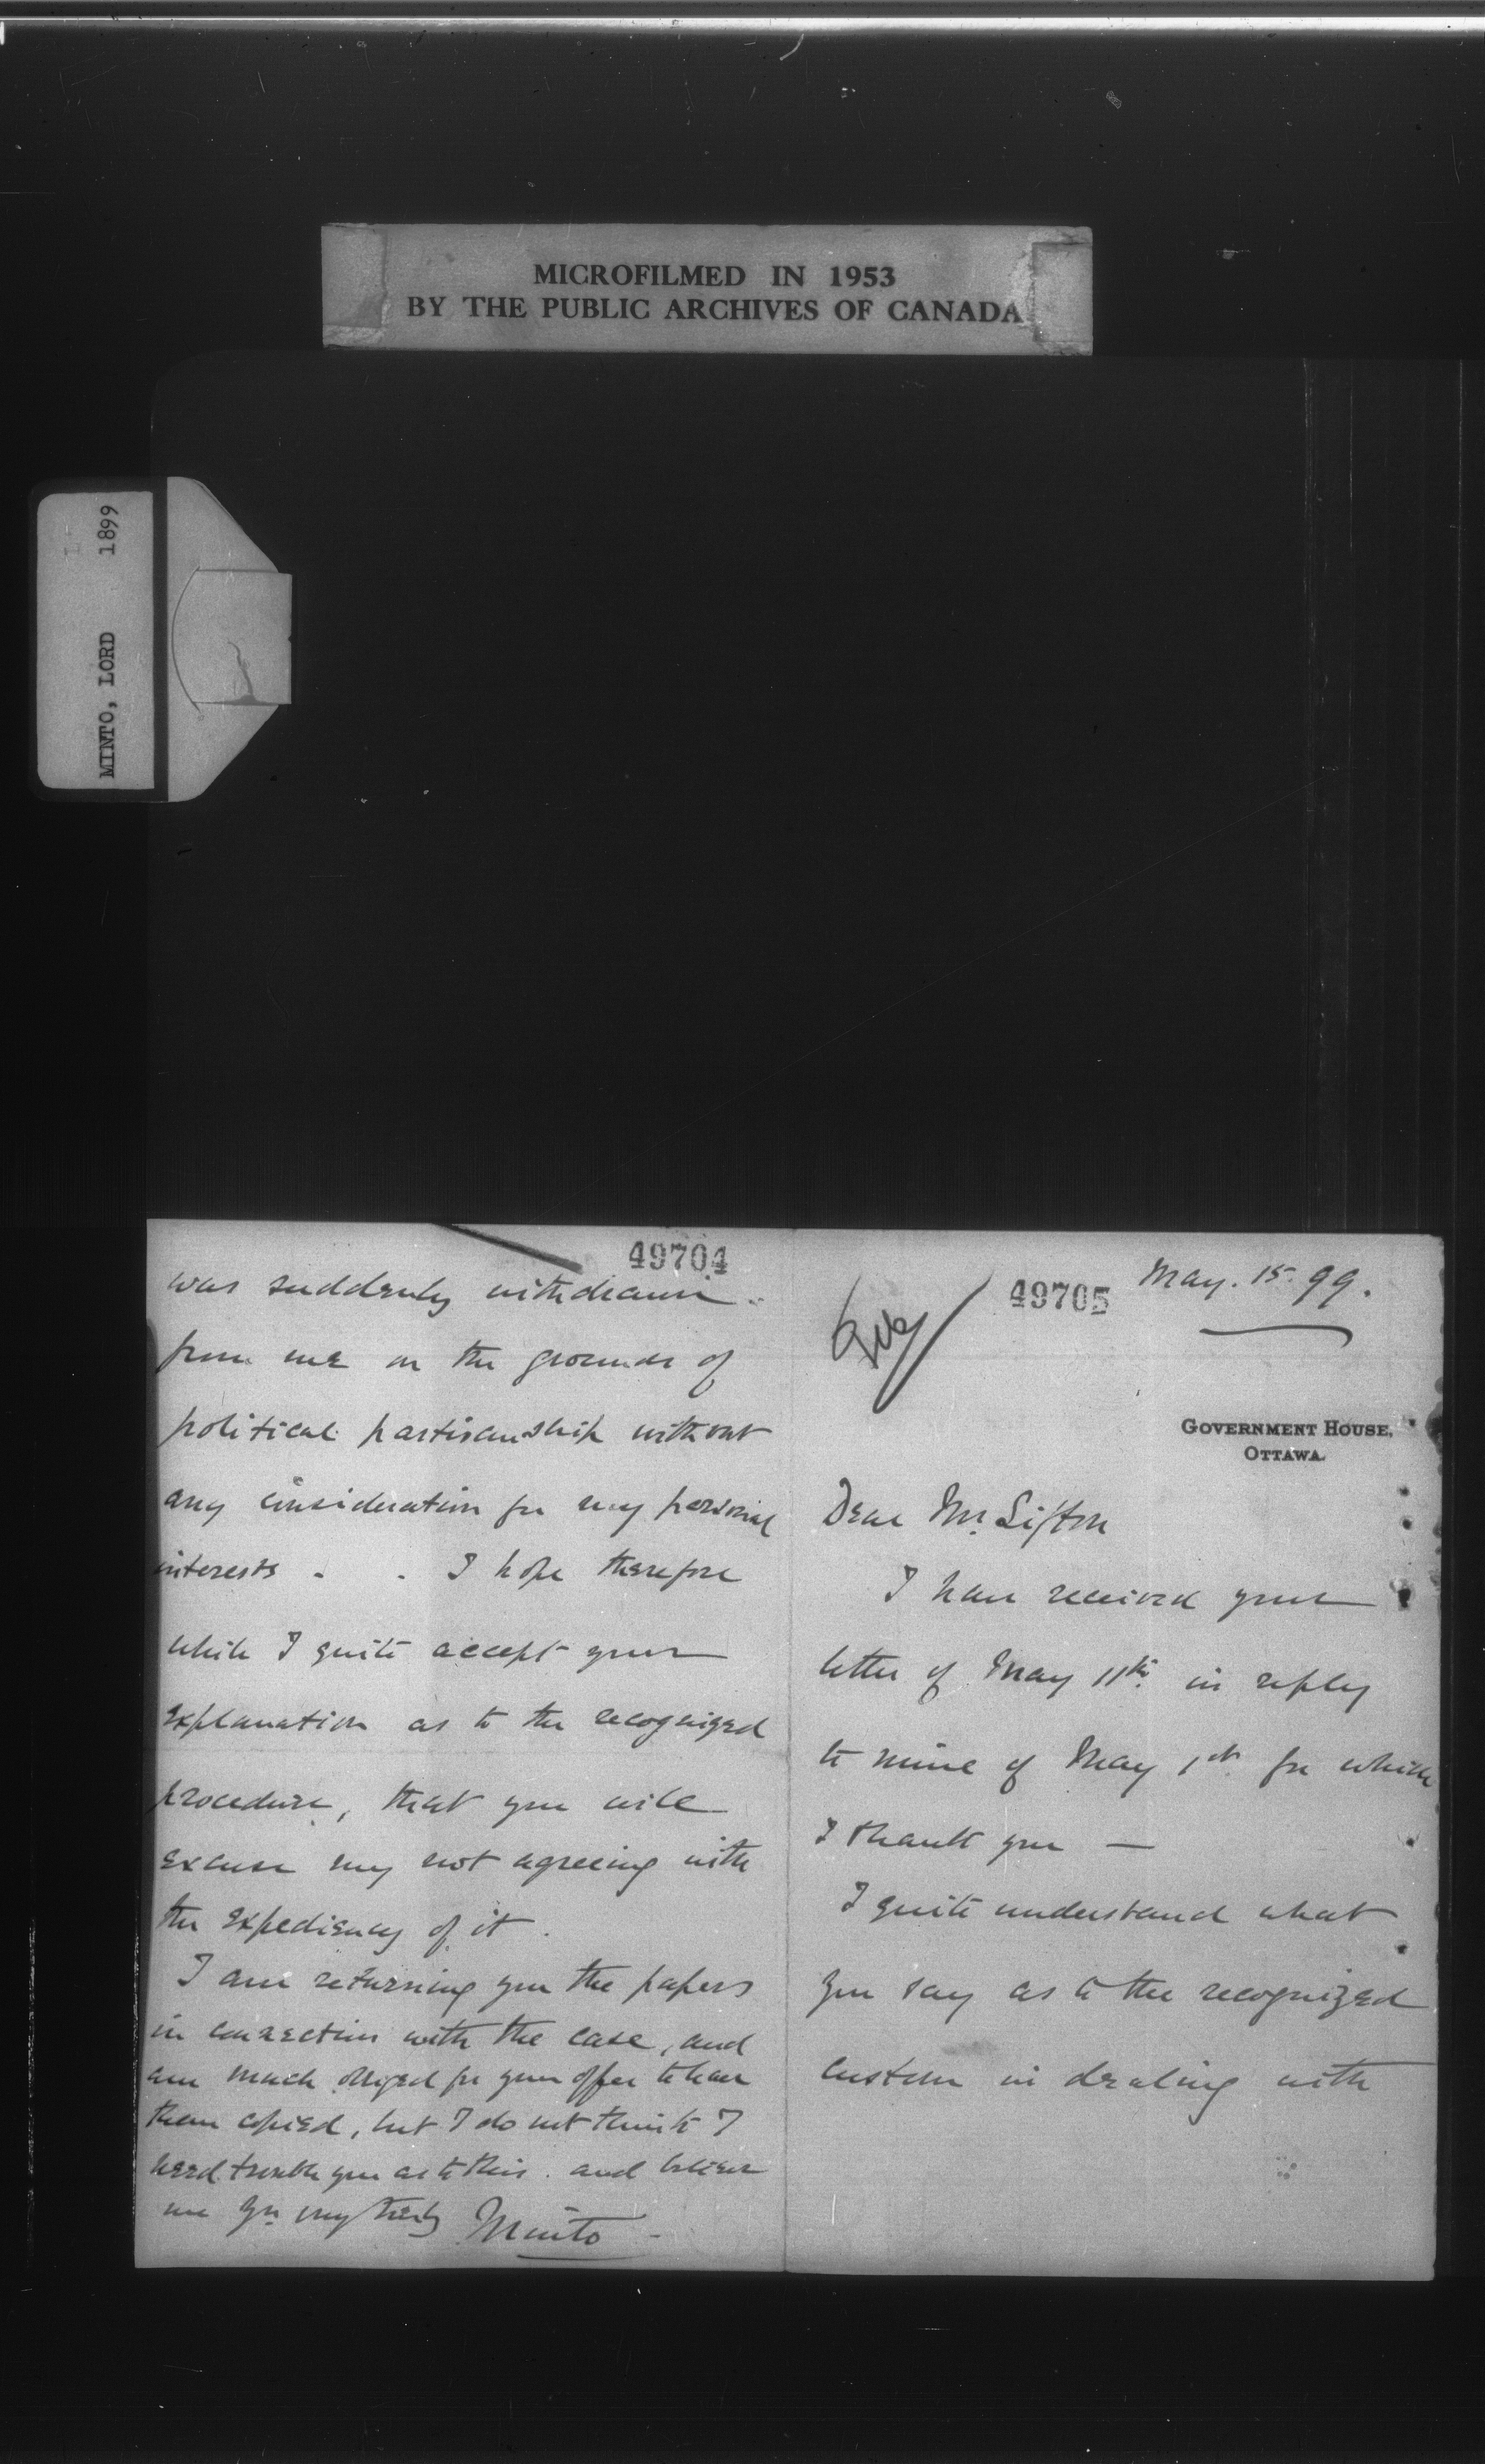 MICROFILMED IN 1953
BY THE PUBLIC ARCHIVES OF CANADA
MINTO, LORD 1899
49704
was suddenly withdrawn
from me on the grounds of
political partisanship without
any consideration for my personal
interests - - I hope therefore
while I quite accept your
explanation as to the recognized
procedure, that you will
excuse my not agreeing with
the expediency of it.
I am returning you the papers
in connection with the case, and
am much obliged for your offer to have
them copied, but I do not think I
need trouble you as to this. and believe
me Yrs very truly Minto -
49705
May. 15. 99.
GOVERNMENT HOUSE,
OTTAWA.
Dear Mr. Sifton
I have received your
letter of May 11th. in reply
to mine of May 1st. for which
I thank you —
I quite understand what
you say as to the recognized
custom in dealing with